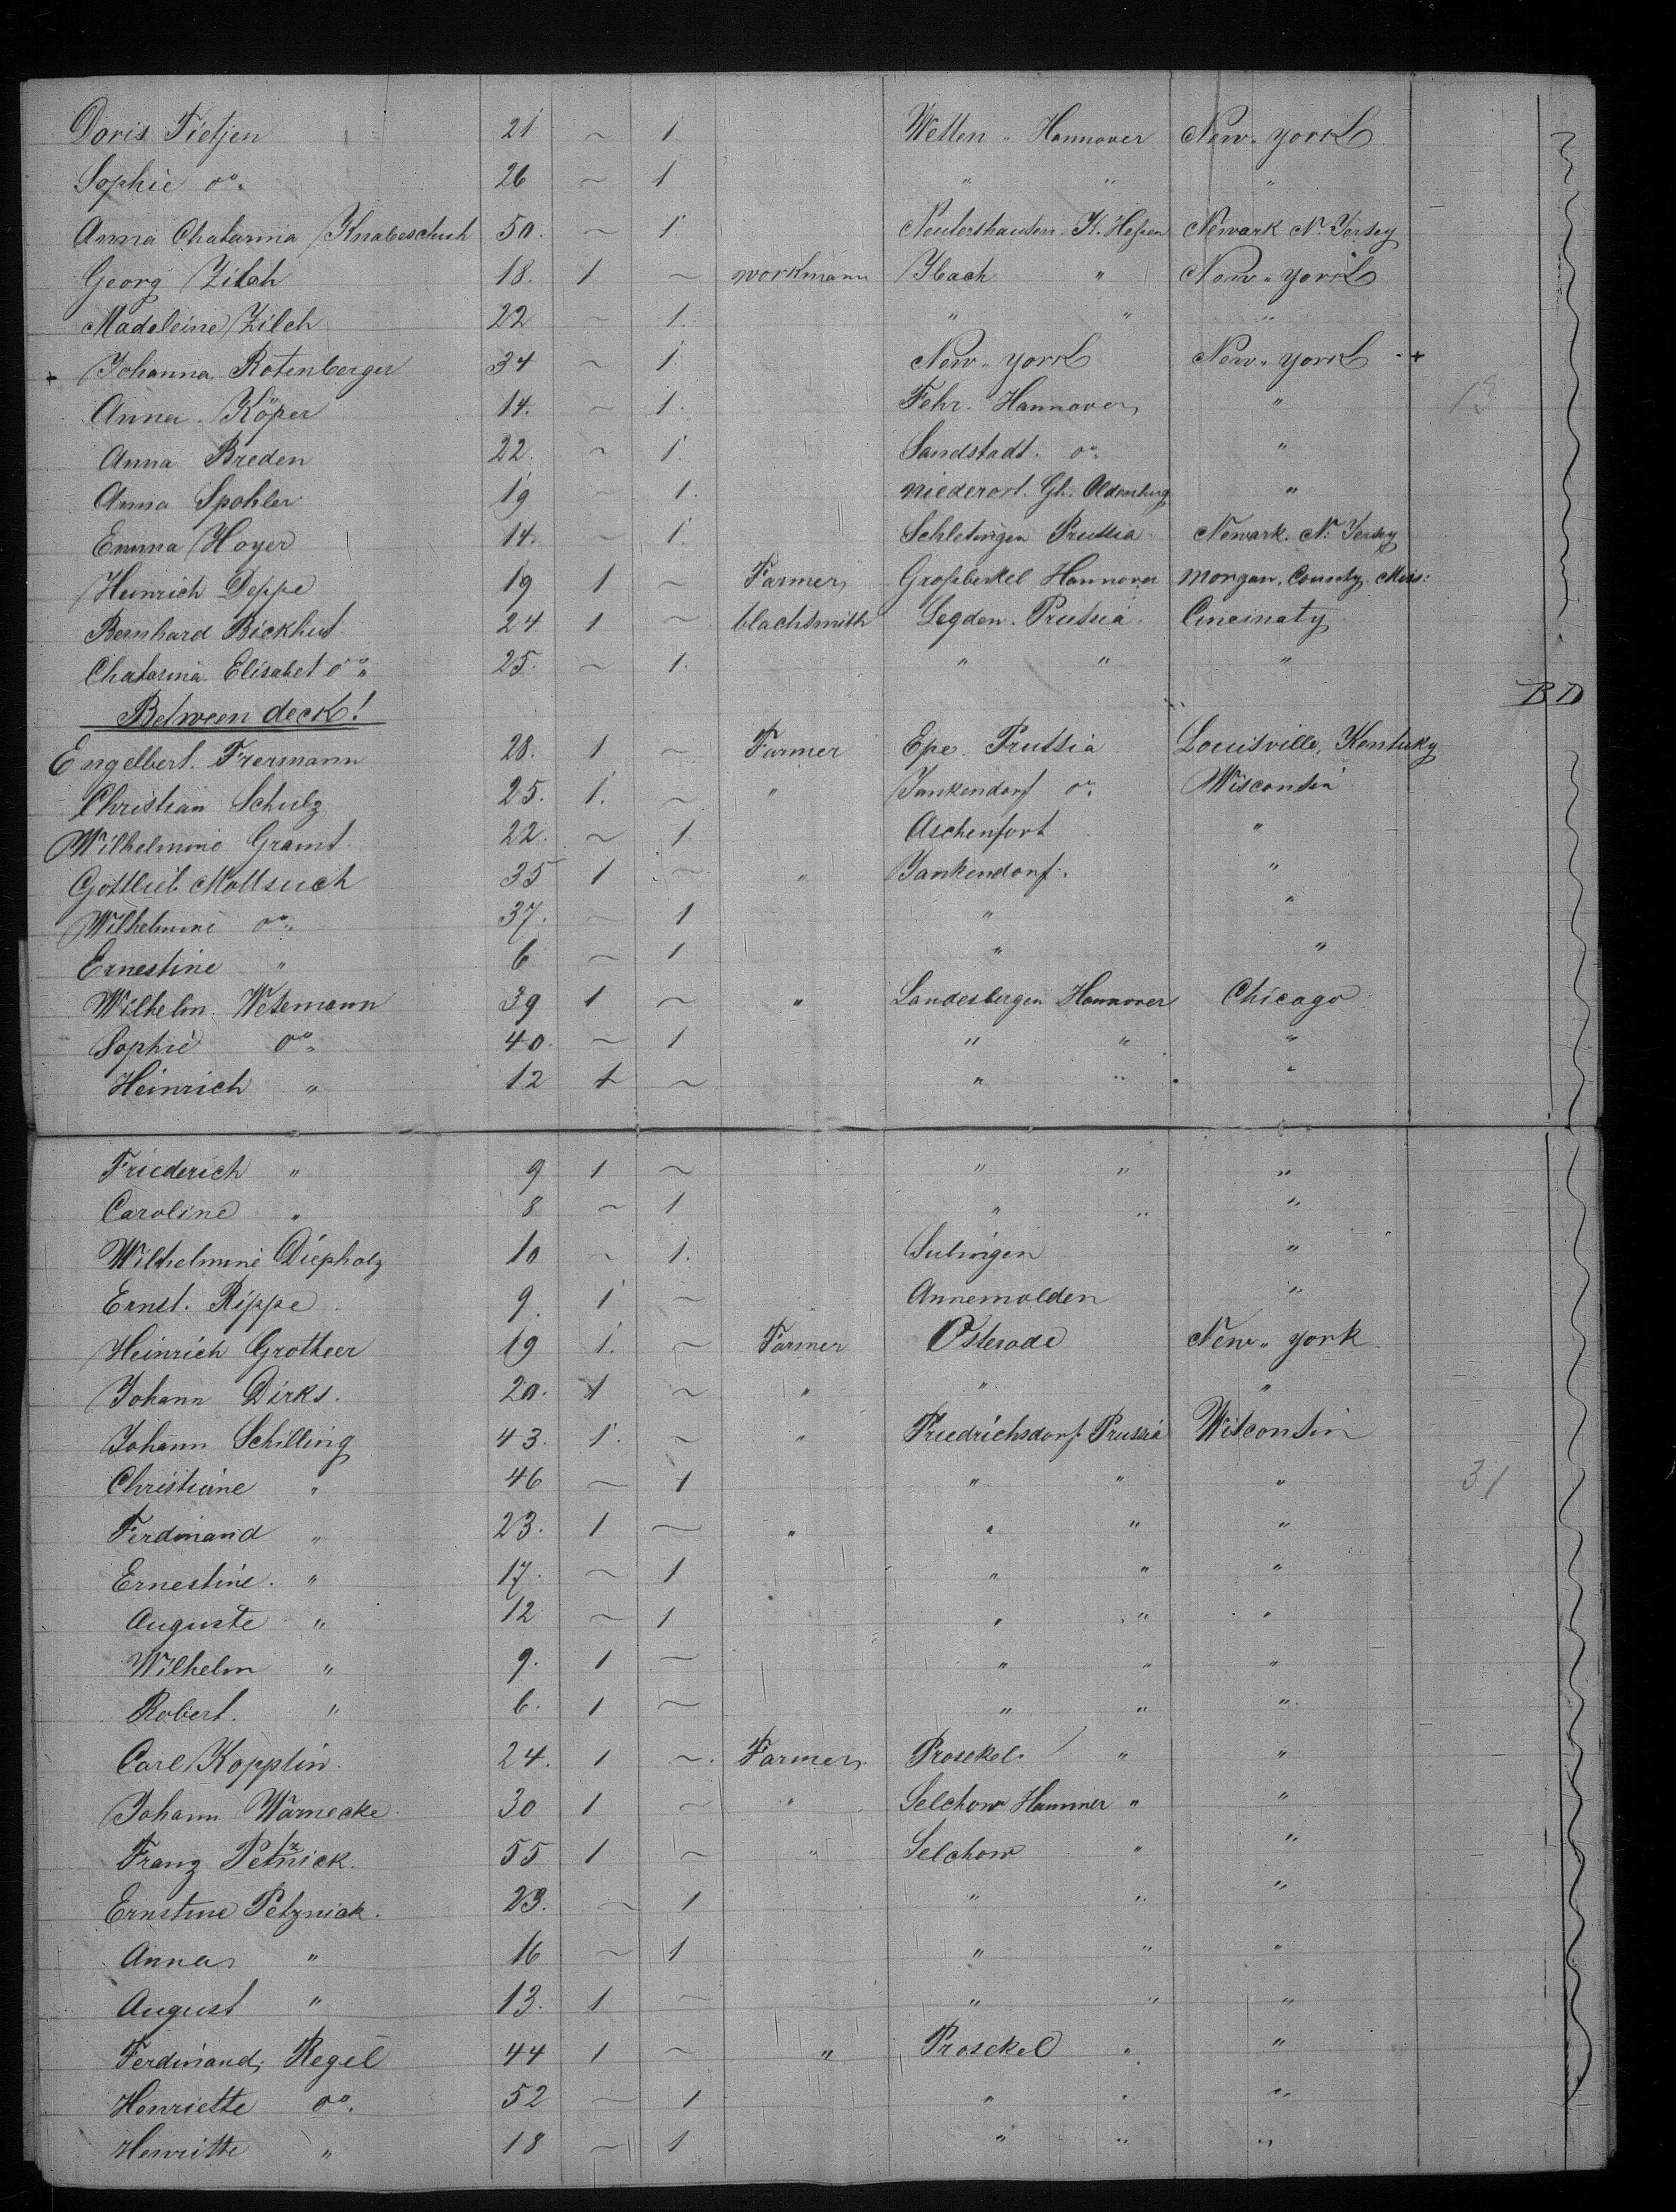 Doris Tietjen 21 ~ 1. Wellen " Hannover New-york
Sophie do. 26 ~ 1 " " "
Anna Chatarina Knabeschuh 50. ~ 1. K. Hessen Newark N. Jersey
Georg Zilch 18. 1 ~ workmann Ibach " New-york
Madeleine Zilch 22 ~ 1. " " "
+ Johanna Rotenberger 34 ~ 1. New-york New-york +
Anna Köper 14. ~ 1. Fehr. Hannover " 13
Anna Breden 22. ~ 1. Sandstadt. do. "
Anna Spohler 19 ~ 1. Niederort. Gh. Oldenburg "
Emma Hoyer 14. ~ 1. Prussia. Newark. N. Jersey
Heinrich Deppe 19 1 ~ Farmer Grossberkel Hannover Morgan. County. Miss:
Bernhard Bickhut 24 1 ~ blachsmith Legden. Prussia. Cincinaty
Chatarina Elisabet do. 25. ~ 1. " " "
Between deck! BD
Engelbert. Frermann 28. 1 ~ Farmer Epe. Prussia Louisville, Kentuky
Christian Schulz 25. 1. ~ " Jankendorf do. Wisconsin
Wilhelmine Gramt 22. ~ 1. Aschenfort "
Gottlieb Mottsuch 35 1 ~ " Jankendorf. "
Wilhelmine do. 37. ~ 1 " "
Ernestine " 6 ~ 1 " "
Wilhelm. Wesemann 39 1 ~ " Landesbergen Hannover Chicago
Sophie do. 40. ~ 1 " " "
Heinrich " 12 1 ~ " " "
Friederich " 9 1 ~ " " "
Caroline " 8 ~ 1 " " "
Wilhelmine Diepholz 10 ~ 1. Sulingen "
Ernst. Rippe 9. 1 ~ Annemolden "
Heinrich Grotheer 19 1. ~ Farmer Osterode New-york
Johann Dirks. 20. 1 ~ " " "
Johann Schilling 43. 1. ~ " Friedrichsdorf Prussia Wisconsin
Christiane " 46 ~ 1 " " " 31
Ferdinand " 23. 1 ~ " " " "
Ernestine. " 17. ~ 1 " " "
Auguste " 12 ~ 1 " " "
Wilhelm " 9. 1 ~ " " "
Robert. " 6. 1 ~ " " "
Carl Kopplin 24. 1 ~. Farmer. Prosekel. " "
Johann Warnecke. 30 1 ~ " Selchow Hammer " "
Franz Petznick. 55 1 ~ " Selchow " "
Ernstine Petznick. 23. ~ 1 " " "
Anna " 16 ~ 1 " " "
August " 13. 1 ~ " " "
Ferdinand, Regel 44 1 ~ " Prosekel " "
Henriette do. 52 ~ 1 " " "
Henritte " 18 ~ 1 " " "